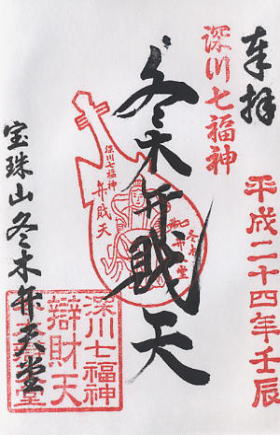 奉拝
平成二十四年壬辰
深川七福神
冬木弁財天
深川七福神
弁財天
宝珠山冬木弁天堂
深川七福神
辯財天